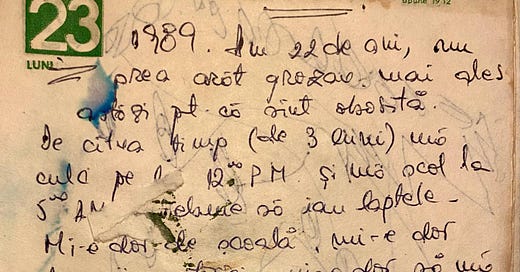 apune 19.12
23
LUNI
1989. Am 22 de ani, nu
prea arăt grozav, mai ales
astăzi pt. că sînt obosită.
De cîtva timp (de 3 luni) mă
culc pe la 12⁰⁰ PM și mă scol la
5⁰⁰ AM trebuie să iau laptele.
Mi-e dor de școală, mi-e dor
dor să mă